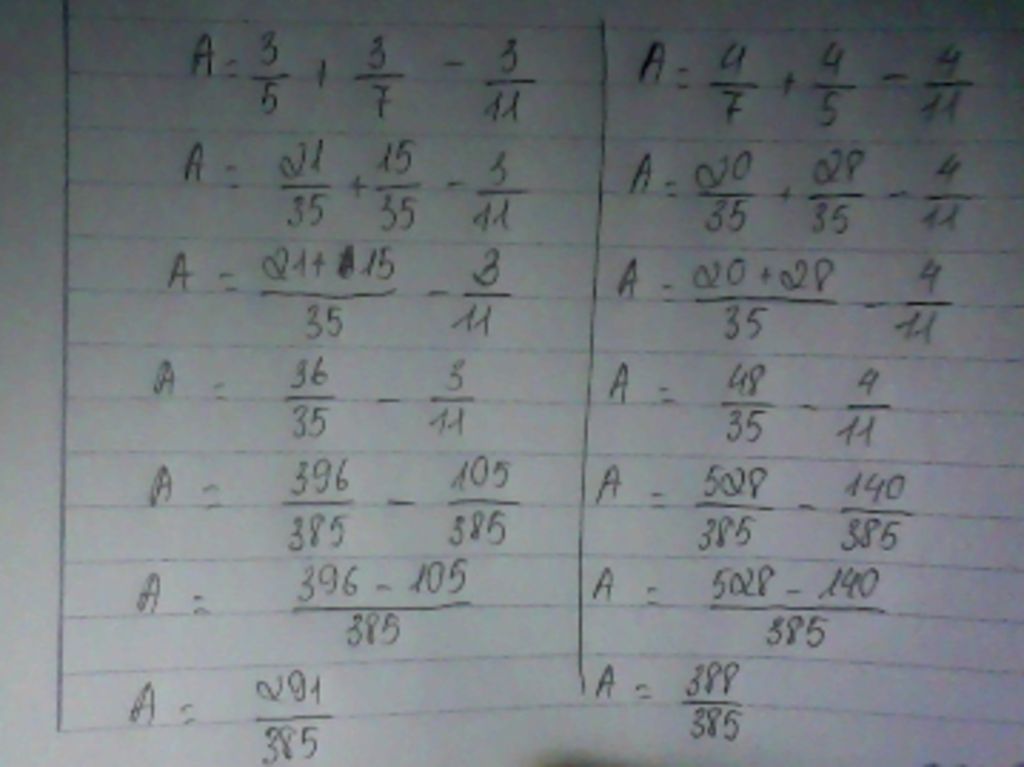 A = 3/5 + 3/7 - 3/11
A = 21/35 + 15/35 - 3/11
A = 21+15/35 - 3/11
A = 36/35 - 3/11
A = 396/385 - 105/385
A = 396 - 105/385
A = 291/385
A = 4/7 + 4/5 - 4/11
A = 20/35 + 28/35 - 4/11
A = 20+28/35 - 4/11
A = 48/35 - 4/11
A = 528/385 - 140/385
A = 528 - 140/385
A = 388/385